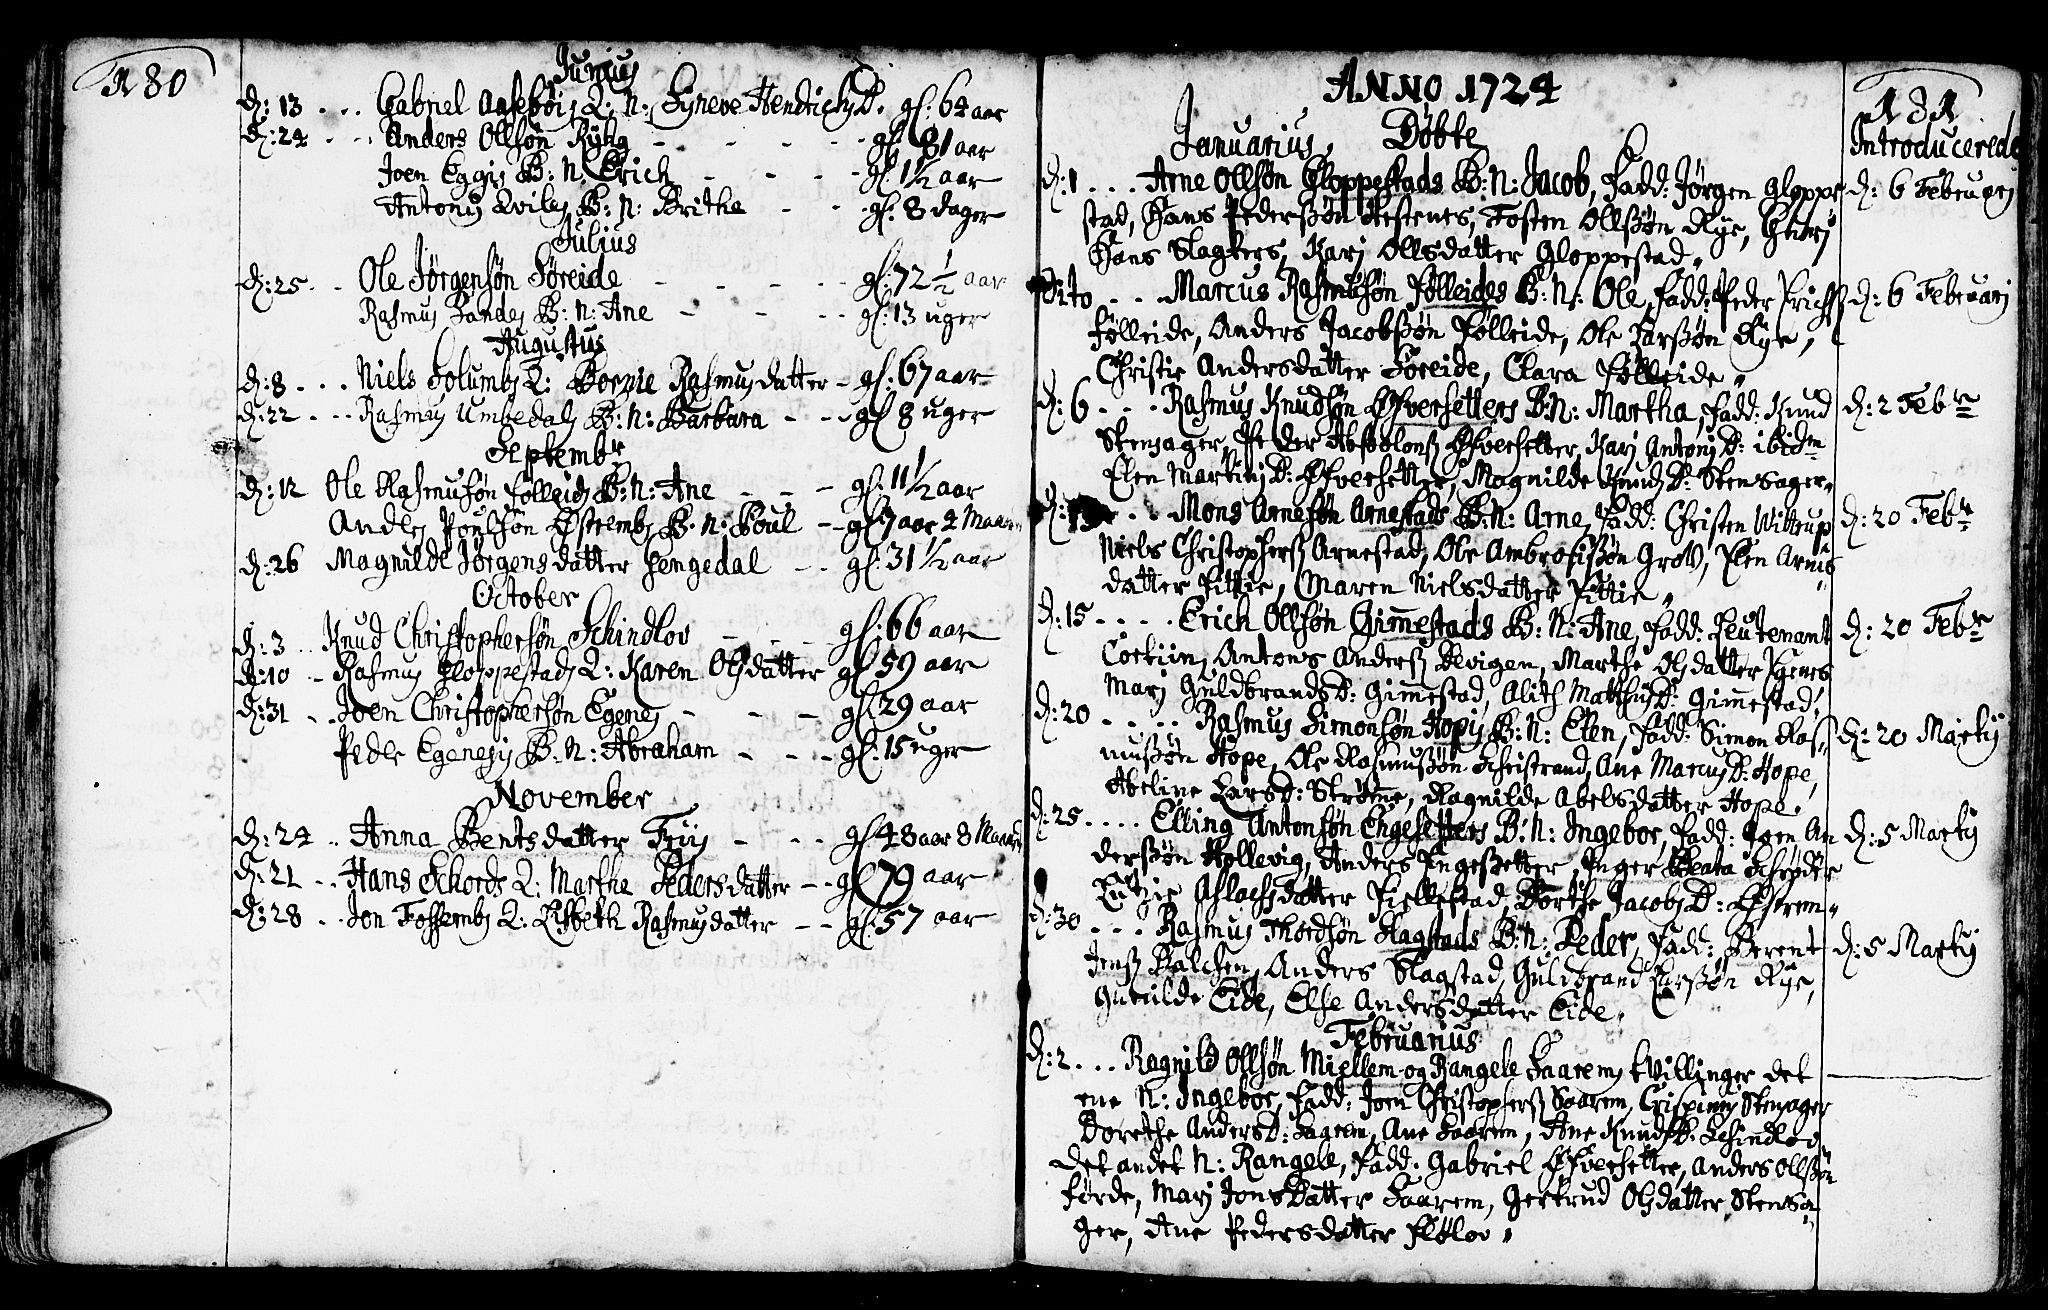 180
Junius
D: 13 . . . Gabriel Aasebøis Q: N: Syneve Hendrichs D. gl: 64 aar
D: 24 - - - Anders Ollsøn Ryhg - - - - gl: 81 aar
Joen Eggis B: N: Erich - - - gl: 1½ aar
Antonij Qviles B: N: Brithe - - gl: 8 dager
Julius
D: 25 - - Ole Jørgensøn Søreide - - - - gl: 72 ½ aar
Rasmus Sandes B: N: Ane - - - gl: 13 uger
Augustus
D: 8 - . . Niels Solumbs Q: Rasmusdatter - gl: 67 aar
D: 22 . . . Rasmus Umbedals B: N: Barbara - - - gl 8 uger
Septembr
D: 12 Ole Rasmusøn Følleids B: N: Ane - - - gl: 11½ aar
Anders Poulsøn Østrembs B: N: Poul - - gl 7 aar 4 Maan
D: 26 Magnilde Jørgensdatter Hengedal - - gl: 31½ aar
October
D: 3 . . Knud Christophersøn Schindlov - - - gl: 66 aar
D: 10 - Rasmus Gloppestads Q: Karen Olsdatter gl 59 aar
D: 31 . . Joen Christophersøn Egenes - - - gl 29 aar
Peder Egenesis B: N: Abraham - - - gl: 15 uger
November
D: 24 .. Anna Bentsdatter - - - gl 48 aar 8 Maan
D: 21 . . Hans Schords Q: Marthe Pedersdatter - - gl 79 aar
D: 28 . . Jon Fossembs Q: Lisbeth Rasmusdatter - - gl: 57 aar
ANNO 1724
181
Januarius, Døbte
Introducerede
D: 1 . . . Arne Ollsøn Gloppestads B: N: Jacob, Fadd: Jørgen Gloppe D: 6 Februarj
stad, Hans Pederssøn Hestenes, Tosten Ollssøn Rye,
Hans Slagters, Karj Ollsdatter Gloppestad.
Dito - - . Marcus Rasmusøn Følleides B: N: Ole, Fadd: Peder D: 6 Februarj
Følleide, Anders Jacobssøn Følleide, Ole Larssøn Rye,
Christie Andersdatter Søreide, Clara Følleide.
D: 6 . . . Rasmus Knudsøn Øfversetters B: N: Martha, Fadd: Knud D: 2 Febr
Stensager, Peder Absolons Øfversetter, Karj Antonj D: ibidm
Elen Martins D: Øfversetter, Magnilde Knuds D: Stensager.
D: . . Mons Arnesøn Arnestads B: N: Arne, Fadd: Christen Wittrup D: 20 Febr
Niels Christophers Arnestad, Ole Ambrosissøn Grov, Elen Arnis
datter Fittie, Maren Nielsdatter Fittie.
D: 15 - . . . . Erich Ollsøn Gimestads B: N: Ane, Fadd: Leutenant D: 20 Febr
Antons Anders Revigen, Marthe Olsdatter Egenes
Marj Guldbrands D: Gimestad, Alith Matthis D: Gimestad.
D: 20 - . . . . Rasmus Simonsøn Hopis B: N: Elen, Fadd: Simon Ras D: 20 Martij
mussøn Hope, Ole Rasmussøn Schistrand, Ane Marcus D: Hope,
Abeline Lars D: Strøme, Ragnilde Abelsdatter Hope.
D: 25 . . . . Elling Antonsøn Engesetters B: N: Ingebor, Fadd: Joen An D: 5 Martij
derssøn Hollevig, Anders Engessetter, Inger Beata Schrøder
Aslachsdatter Fiellestad, Dorthe Jacobs D: Østrem.
D: 30 . . . Rasmus Thordsøn Slagstads B: N: Peder, Fadd: Berent D: 5 Martij
Jens Balchen, Anders Slagstad, Guldbrand Larssøn Rye,
Gunilde Eide, Else Andersdatter Eide.
Februarius
D: 2 . . . Ragnild Ollsøn Miellem og Rangele Saarems tvillinger det
ene N: Ingebor, Fadd: Joen Christophers Saarem, Crispinus Stensager
Dorethe Anders D: Saarem, Ane Saarem, Ane Knuds D: Schindlov
det andet N: Rangele, Fadd: Gabriel Øfversetter, Anders Ollssøn
Førde, Marj Jonsdatter Saarem, Gertrud Olsdatter Stensa
ger, Ane Pedersdatter Fløtov.